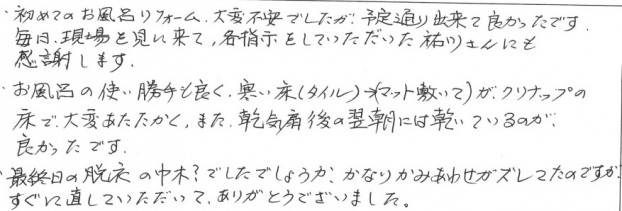 ・初めてのお風呂リフォーム、大変不安でしたが、予定通り出来て良かったです。
毎日、現場を見に来て、各指示をしていただいた祐川さんにも
感謝します。
・お風呂の使い勝手も良く、寒い床(タイル)→(マット敷いて)が、クリナップの
床で、大変あたたかく、また、乾気扇後の翌朝には乾いているのが、
良かったです。
・最終日の脱衣の巾木?でしたでしょうか、かなりかみあわせがズレてたのですが
すぐに直していただいて、ありがとうございました。